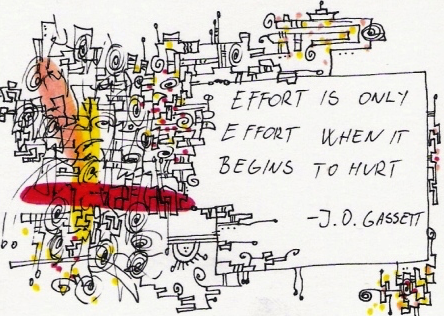 EFFORT IS ONLY
EFFORT WHEN IT
BEGINS TO HURT
-J.O. GASSETT